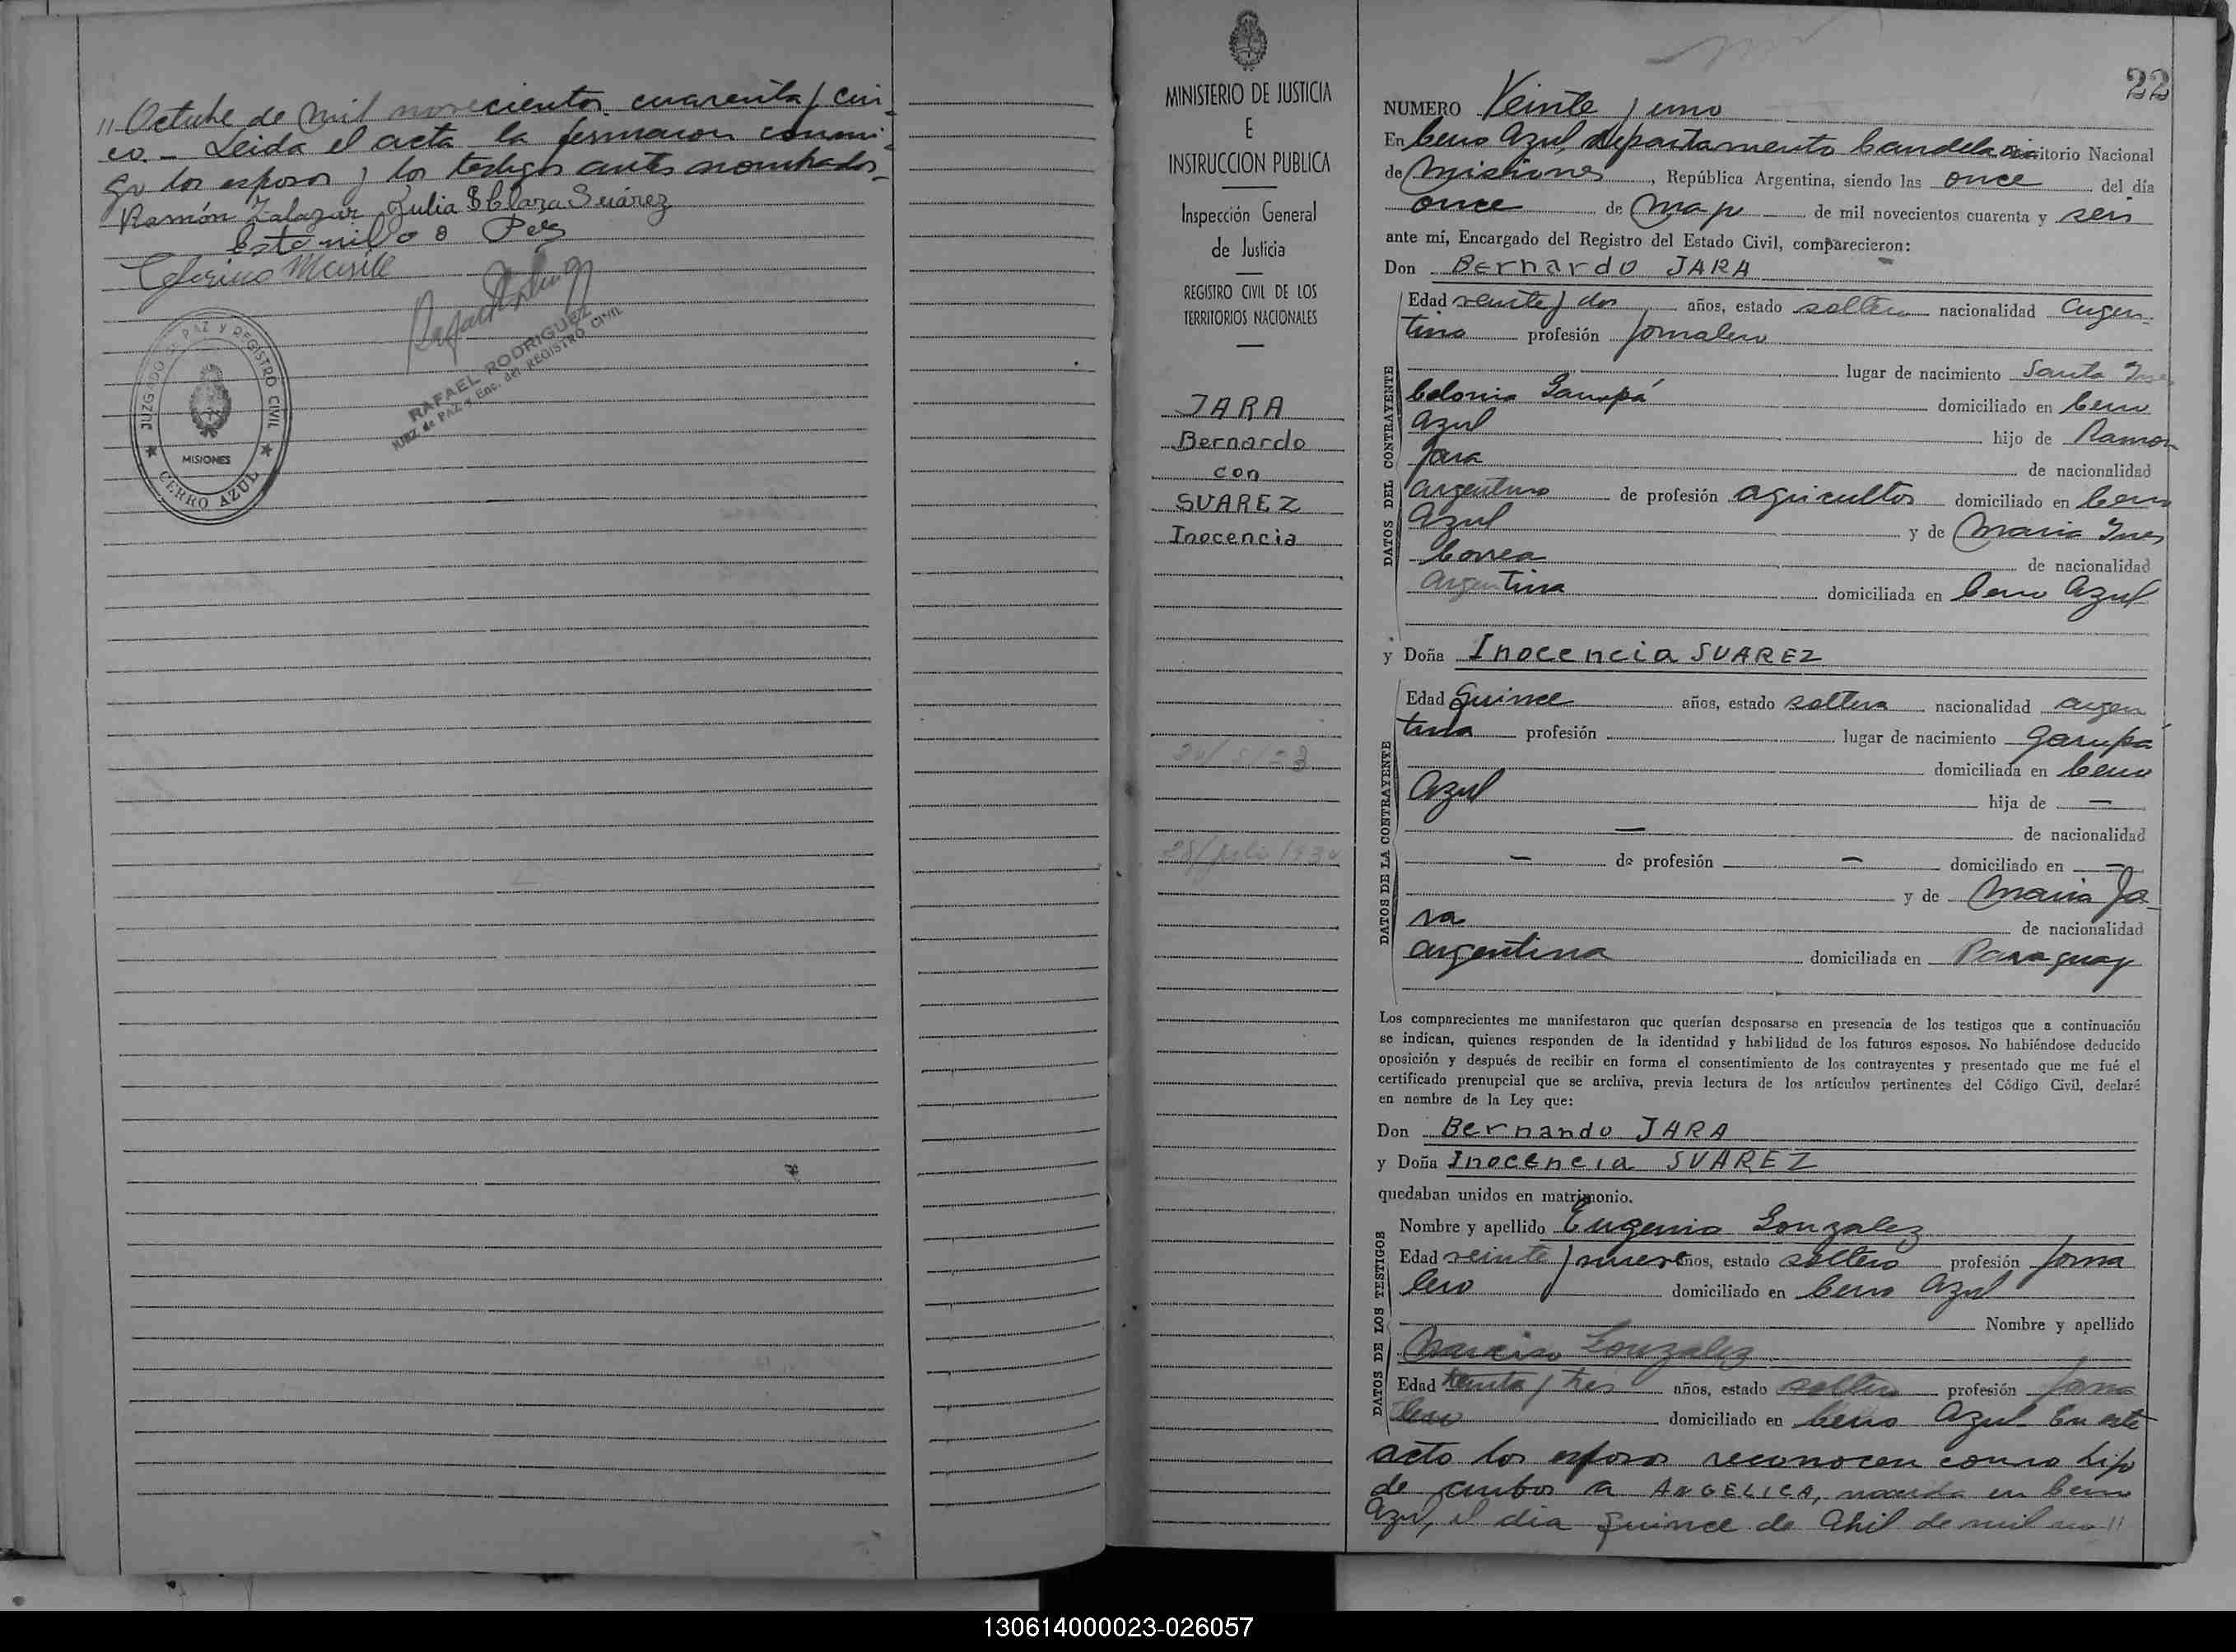 " Octubre de mil novecientos cuarenta y cin-
co.- Leida el acta la firmaron conmi-
go los esposos y los testigos antes nombrados.-
Ramón Zalazar Julia Clara Suárez
RAFAEL RODRIGUEZ
JUEZ de PAZ y Enc. del REGISTRO CIVIL
JUZGADO DE PAZ Y REGISTRO CIVIL
MISIONES
CERRO AZUL
MINISTERIO DE JUSTICIA
E
INSTRUCCION PUBLICA
Inspección General
de Justicia
REGISTRO CIVIL DE LOS
TERRITORIOS NACIONALES
JARA
Bernardo
con
SUAREZ
Inocencia
22
NUMERO Veinte y uno
En Cerro Azul, departamento Candelaria Territorio Nacional
de Misiones, República Argentina, siendo las once del día
once de Mayo de mil novecientos cuarenta y seis
ante mí, Encargado del Registro del Estado Civil, comparecieron:
Don Bernardo JARA
DATOS DEL CONTRAYENTE
Edad veinte y dos años, estado soltero nacionalidad argen-
tina profesión Jornalero
lugar de nacimiento Santa Ines
Colonia Garupá domiciliado en Cerro
Azul hijo de Ramon
Jara de nacionalidad
argentino de profesión agricultor domiciliado en Cerro
Azul y de Maria Ines
Correa de nacionalidad
argentina domiciliada en Cerro Azul
y Doña Inocencia SUAREZ
DATOS DE LA CONTRAYENTE
Edad Quince años, estado soltera nacionalidad argen
tina profesión lugar de nacimiento Garupá
domiciliada en Cerro
Azul hija de —
— de nacionalidad
— de profesión — domiciliado en —
y de Maria Ja-
ra de nacionalidad
argentina domiciliada en Paraguay
Los comparecientes me manifestaron que querían desposarse en presencia de los testigos que a continuación
se indican, quienes responden de la identidad y habilidad de los futuros esposos. No habiéndose deducido
oposición y después de recibir en forma el consentimiento de los contrayentes y presentado que me fué el
certificado prenupcial que se archiva, previa lectura de los artículos pertinentes del Código Civil, declaré
en nombre de la Ley que:
Don Bernando JARA
y Doña Inocencia SUAREZ
quedaban unidos en matrimonio.
DATOS DE LOS TESTIGOS
Nombre y apellido Eugenio Gonzalez
Edad veinte y nueve años, estado soltero profesión Jorna
lero domiciliado en Cerro Azul
Nombre y apellido
Narciso Gonzalez
Edad treinta y tres años, estado soltero profesión Jorna
lero domiciliado en Cerro Azul En este
acto los esposos reconocen como hijo
de ambos a ANGELICA, nacida en Cerro
Azul, el dia quince de Abril de mil no "
130614000023-026057